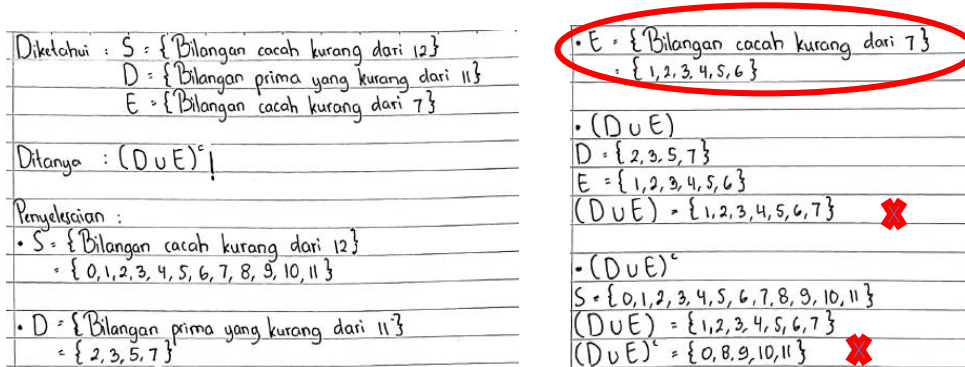 Diketahui : S = {Bilangan cacah kurang dari 12}
D = {Bilangan prima yang kurang dari 11}
E = {Bilangan cacah kurang dari 7}
Ditanya : (D ∪ E)ᶜ!
Penyelesaian :
• S = {Bilangan cacah kurang dari 12}
= {0, 1, 2, 3, 4, 5, 6, 7, 8, 9, 10, 11}
• D = {Bilangan prima yang kurang dari 11}
= {2, 3, 5, 7}
• E = {Bilangan cacah kurang dari 7}
= {1, 2, 3, 4, 5, 6}
• (D ∪ E)
D = {2, 3, 5, 7}
E = {1, 2, 3, 4, 5, 6}
(D ∪ E) = {1, 2, 3, 4, 5, 6, 7}
• (D ∪ E)ᶜ
S = {0, 1, 2, 3, 4, 5, 6, 7, 8, 9, 10, 11}
(D ∪ E) = {1, 2, 3, 4, 5, 6, 7}
(D ∪ E)ᶜ = {0, 8, 9, 10, 11}